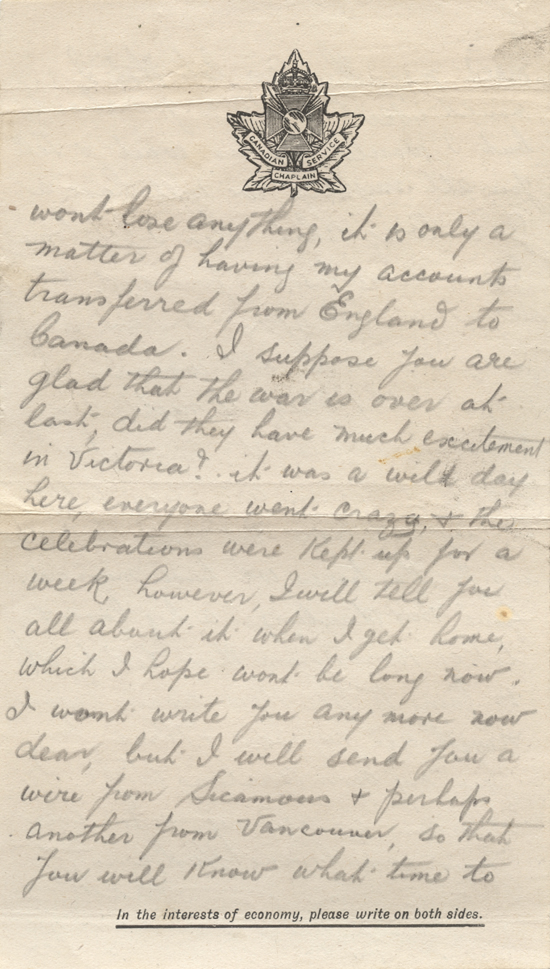 CANADIAN
CHAPLAIN
SERVICE
wont lose anything, it is only a
matter of having my accounts
transferred from England to
Canada. I suppose you are
glad that the war is over at
last, did they have much excitement
in Victoria? it was a wild day
here, everyone went crazy, & the
celebrations were kept up for a
week, however, I will tell you
all about it when I get home,
which I hope wont be long now.
I wont write you any more now
dear, but I will send you a
wire from Sicamous & perhaps
another from Vancouver, so that
you will know what time to
In the interests of economy, please write on both sides.